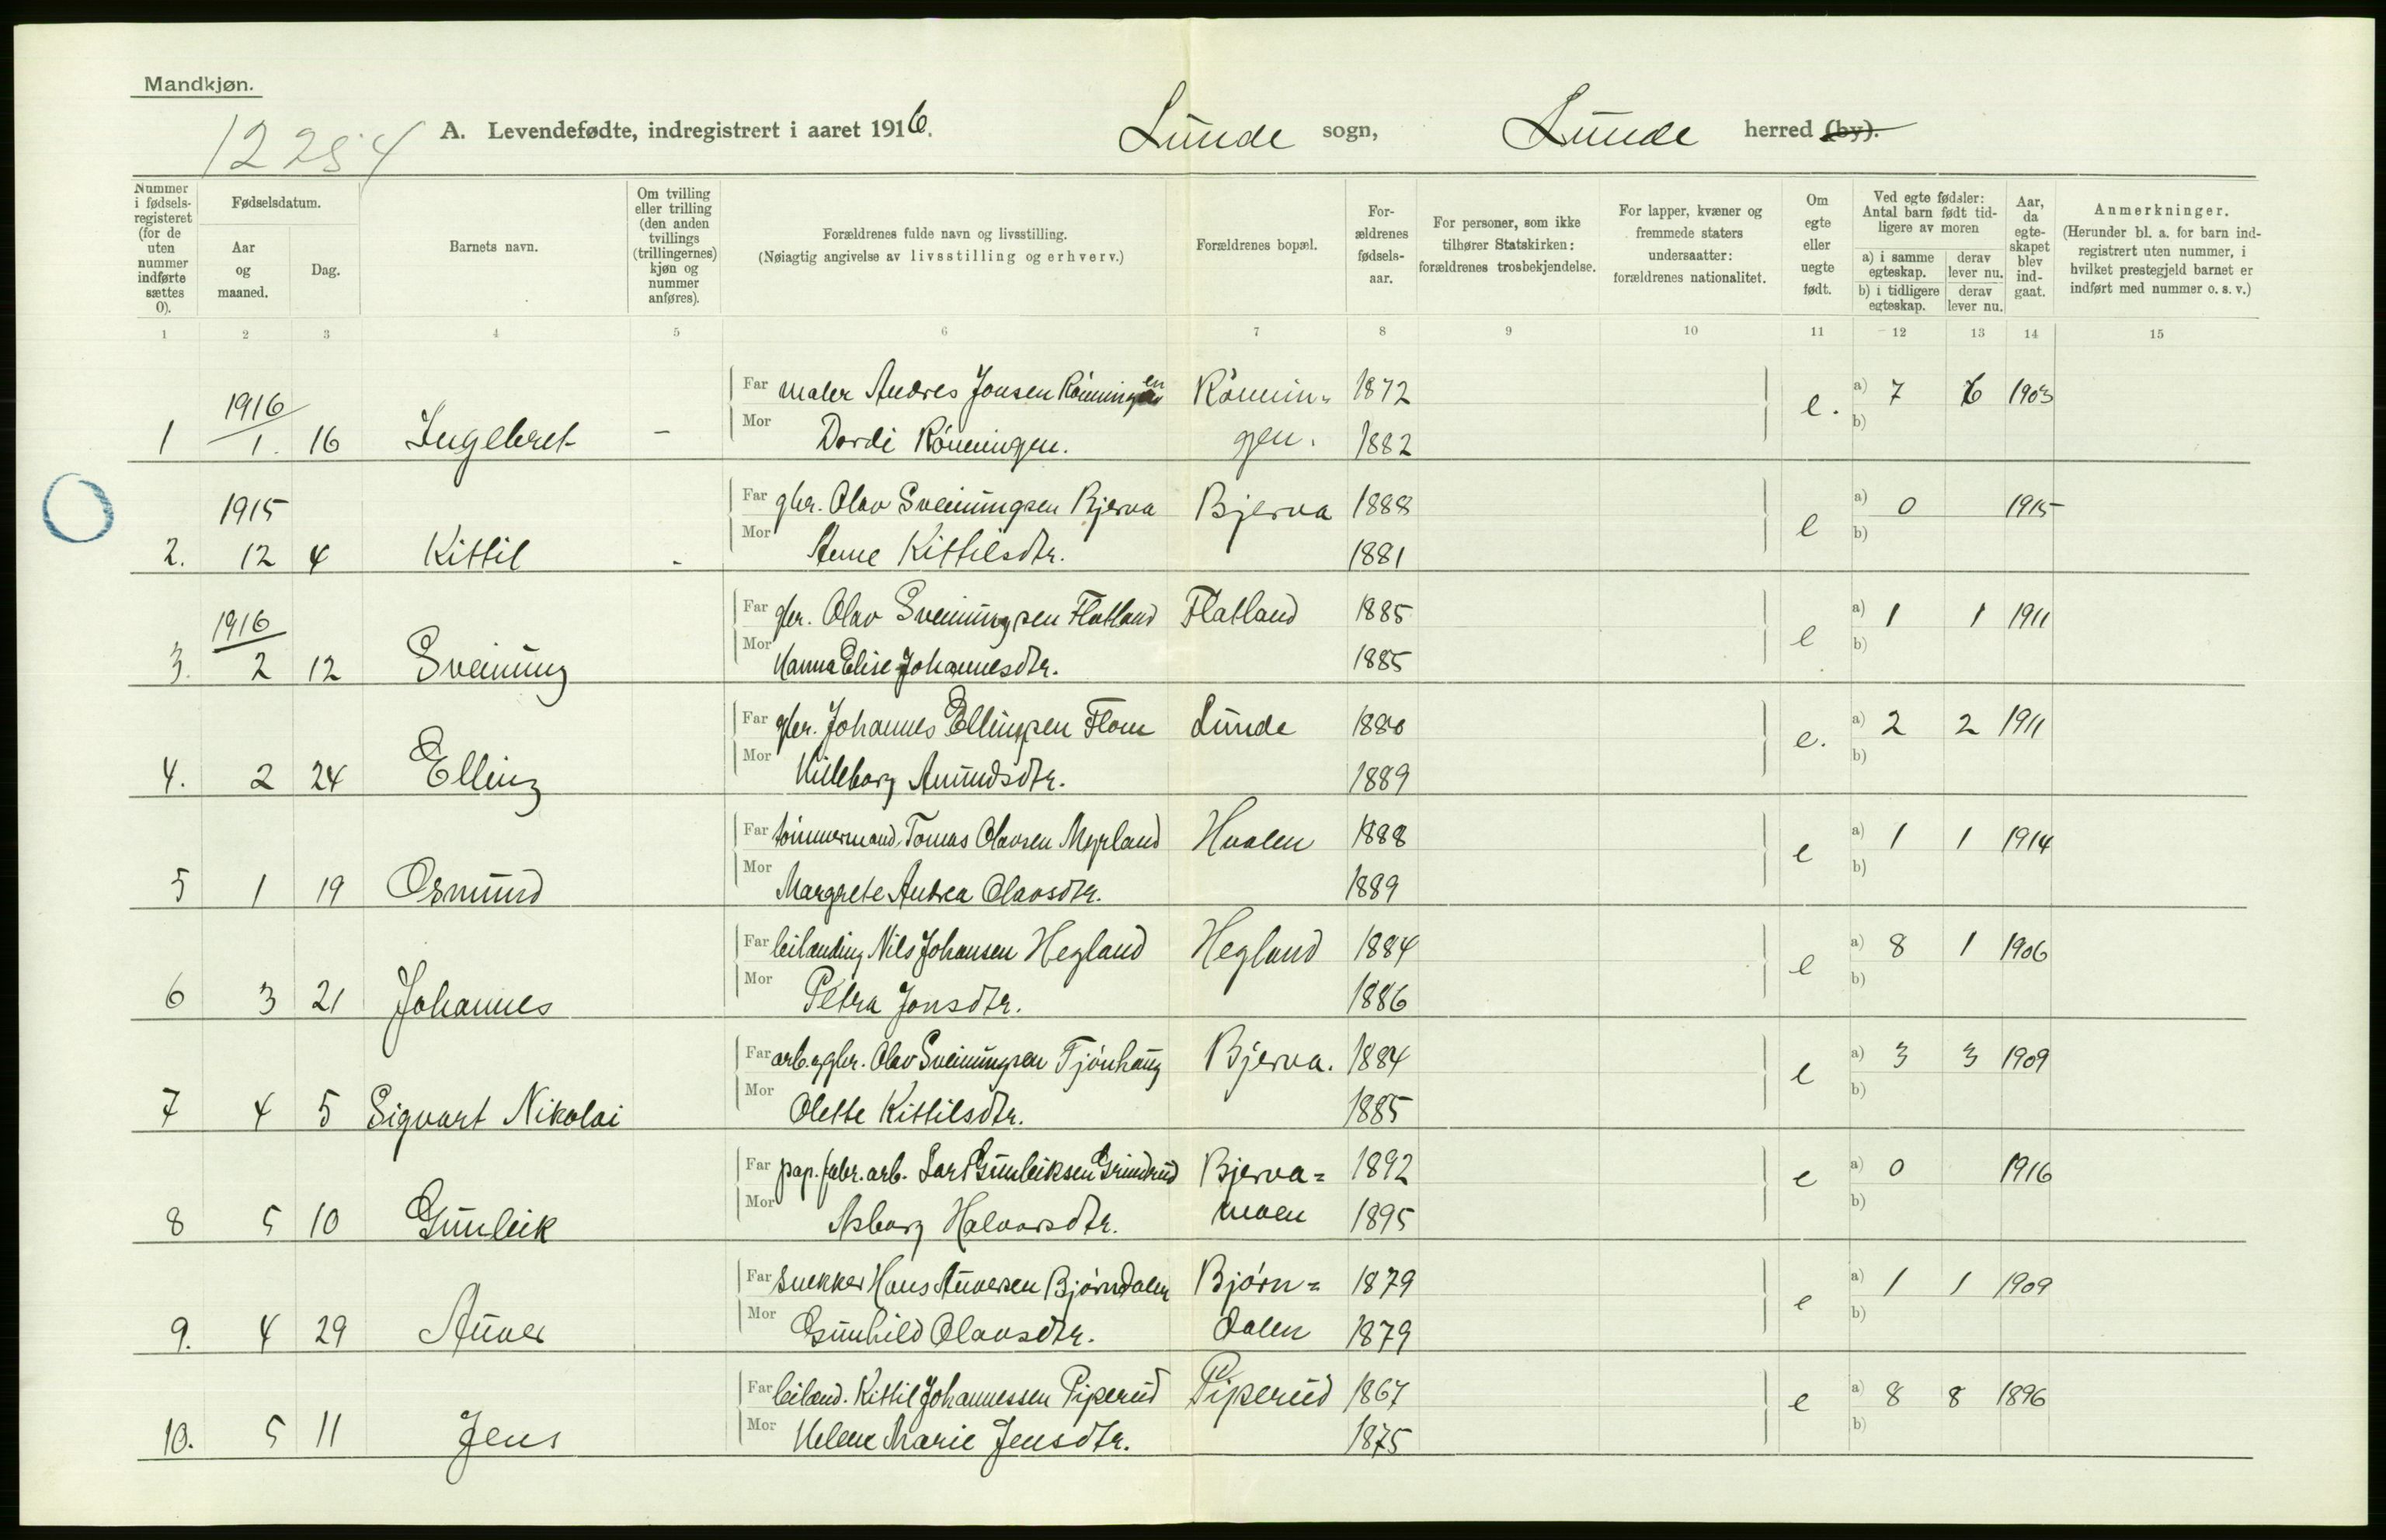 Mandkjøn.
12254
A. Levendefødte, indregistrert i aaret 1916. Lunde sogn, Lunde herred (by).
Nummer i fødselsregisteret (for de uten nummer indførte sættes 0).
Fødselsdatum.
Aar og maaned.
Dag.
Barnets navn.
Om tvilling eller trilling (den anden tvillings (trillingernes) kjøn og nummer anføres).
Forældrenes fulde navn og livsstilling.
(Nøiagtig angivelse av livsstilling og erhverv.)
Forældrenes bopæl.
Forældrenes fødselsaar.
For personer, som ikke tilhører Statskirken: forældrenes trosbekjendelse.
For lapper, kvæner og fremmede staters undersaatter: forældrenes nationalitet.
Om egte eller uegte født.
Ved egte fødsler: Antal barn født tidligere av moren
a) i samme egteskap. derav lever nu.
b) i tidligere egteskap. derav lever nu.
Aar, da egteskapet blev indgaat.
Anmerkninger.
(Herunder bl. a. for barn indregistrert uten nummer, i hvilket prestegjeld barnet er indført med nummer o. s. v.)
1 2 3 4 5 6 7 8 9 10 11 12 13 14 15
1916
Far maler Andres Jonsen Rönningen Rönnin- 1872 e. a) 7 6 1903
1 1. 16 Ingebret - Mor Dordi Rönningen. gen. 1882 b)
1915
Far gbr. Olav Sveinungsen Bjerva Bjerva 1888 e a) 0 1915
2. 12 4 Kittil - Mor Anne Kittilsdtr. 1881 b)
1916
Far gbr. Olav Sveinungsen Flatland Flatland 1885 e a) 1 1 1911
3. 2 12 Sveinung Mor Hanna Elise Johannesdtr. 1885 b)
Far gbr. Johannes Ellingsen Flom Lunde 1880 e. a) 2 2 1911
4. 2 24 Elling Mor Hilleborg Amundsdtr. 1889 b)
Far tömmermand Tomas Olavsen Myrland Hualen 1888 e a) 1 1 1914
5 1 19 Osmund Mor Margrete Andrea Olavsdtr. 1889 b)
Far leilending Nils Johansen Hegland Hegland 1884 e a) 8 1 1906
6 3 21 Johannes Mor Petra Jonsdtr. 1886 b)
Far arb. og gbr. Olav Sveinungsen Tjönhaug Bjerva. 1884 e a) 3 3 1909
7 4 5 Sigvart Nikolai Mor Olette Kittilsdtr. 1885 b)
Far pap. fabr. arb. Lars Gunleiksen Grindrud Bjerva= 1892 e a) 0 1916
8 5 10 Gunleik Mor Asborg Halvorsdtr. moen 1895 b)
Far snekker Hans Auversen Björndalen Björn= 1879 e a) 1 1 1909
9. 4 29 Auver Mor Gunhild Olavsdtr. dalen 1879 b)
Far leiland. Kittil Johannessen Piperud Piperud 1867 e a) 8 8 1896
10. 5 11 Jens Mor Helene Marie Jensdtr. 1875 b)